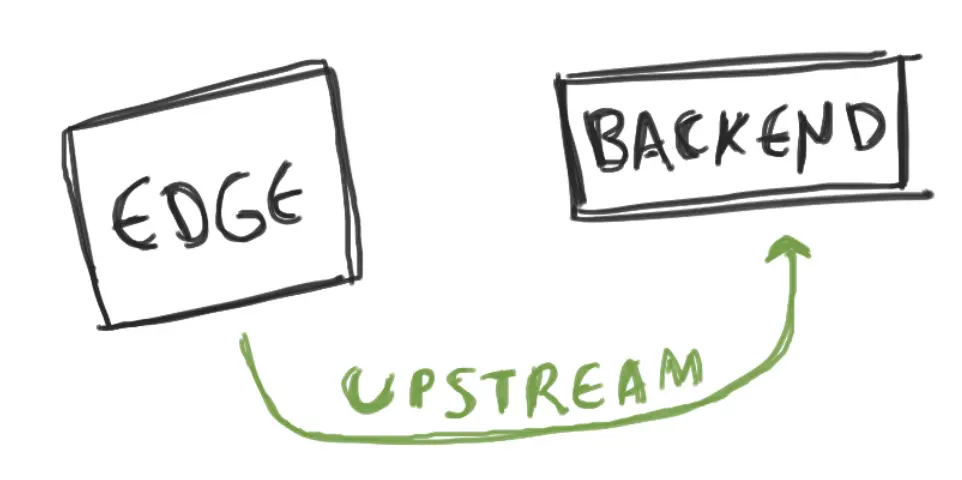 EDGE
BACKEND
UPSTREAM